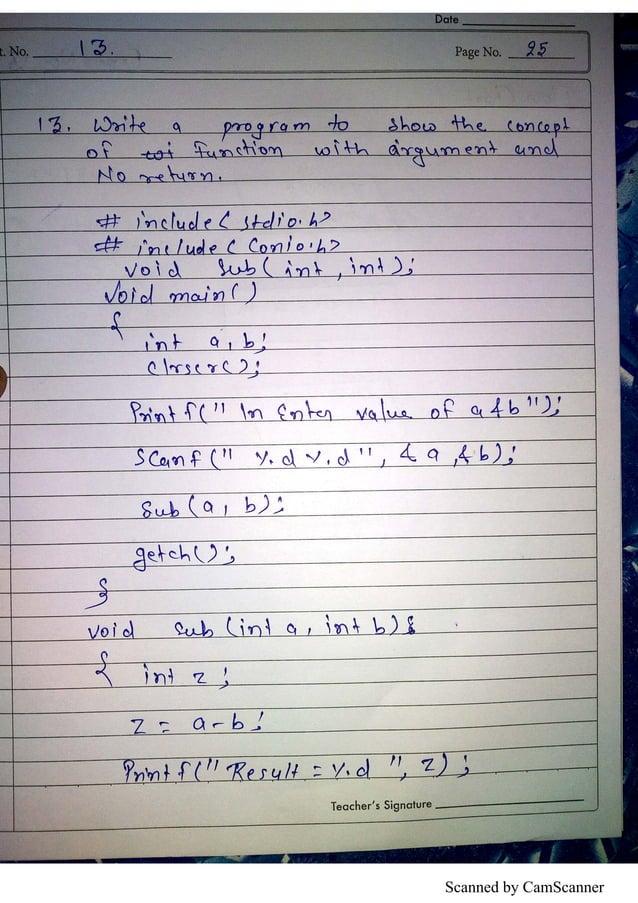 Date
t. No. 13.
Page No. 25
13. Write a program to show the concept
of function with argument and
No return.
# include < stdio.h>
# include < Conio.h>
void sub( int , int );
void main()
{
int a, b;
clrscr();
Printf(" \n Enter value of a &b");
Scanf (" %d %d ", & a ,& b);
Sub (a, b);
getch();
}
void sub (int a, int b)
{ int z ;
z = a-b ;
Printf(" Result = %d ", z) ;
Teacher's Signature
Scanned by CamScanner